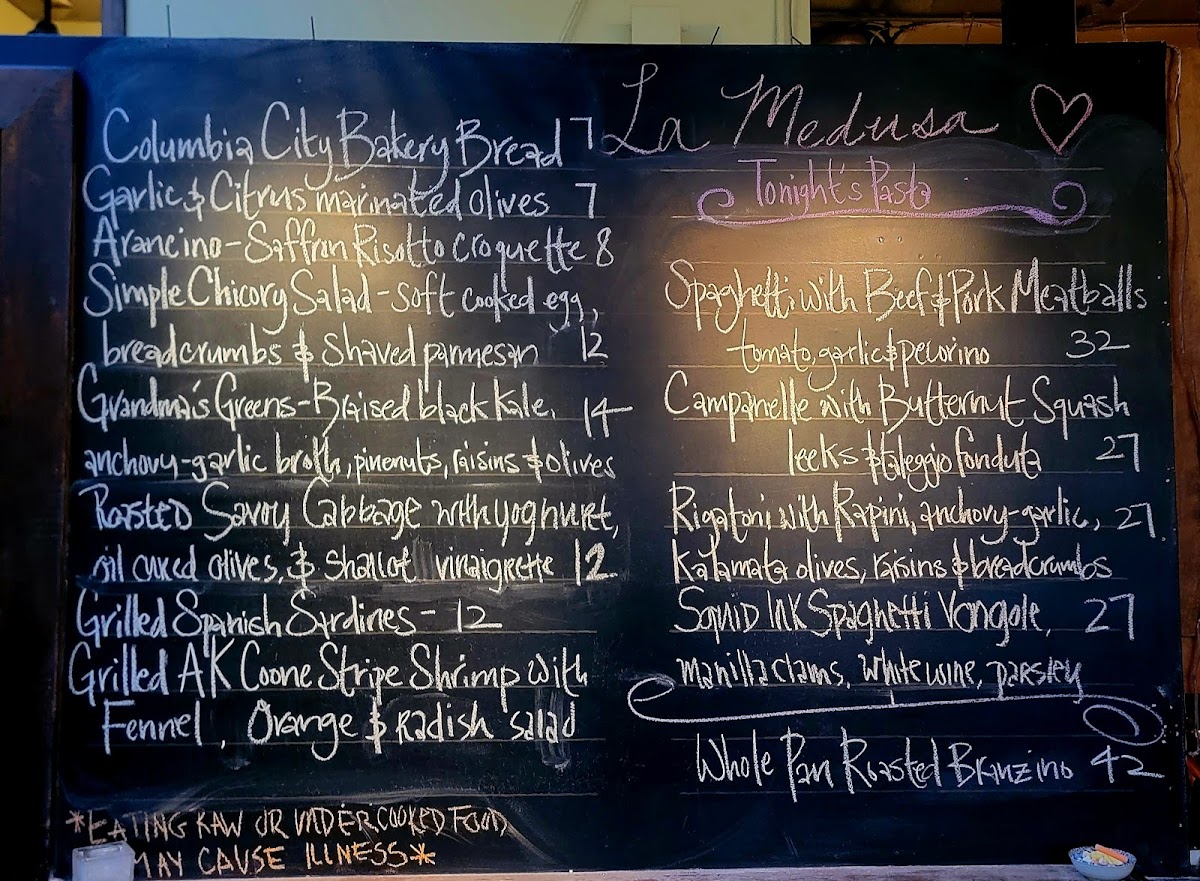 Columbia City Bakery Bread 7
Garlic & Citrus marinated olives 7
Arancino - Saffron Risotto croquette 8
Simple Chicory Salad - soft cooked egg,
breadcrumbs & shaved parmesan 12
Grandma's Greens - Braised black kale, 14
anchovy-garlic broth, pinenuts, raisins & olives
Roasted Savoy Cabbage with yoghurt,
oil cured olives, & shallot vinaigrette 12
Grilled Spanish Sardines - 12
Grilled AK Coone Stripe Shrimp with
Fennel, Orange & Radish salad
*EATING RAW OR UNDERCOOKED FOOD
MAY CAUSE ILLNESS*
La Medusa
Tonight's Pasta
Spaghetti with Beef & Pork Meatballs
tomato, garlic & pecorino 32
Campanelle with Butternut Squash
leeks & taleggio fonduta 27
Rigatoni with Rapini, anchovy-garlic, 27
Kalamata olives, raisins & breadcrumbs
Squid Ink Spaghetti Vongole, 27
manilla clams, white wine, parsley
Whole Pan Roasted Branzino 42